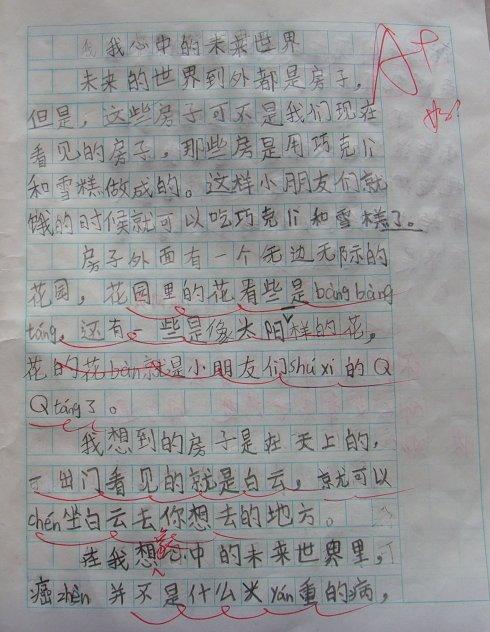 我心中的未来世界
A+
未来的世界到外都是房子,
但是,这些房子可不是我们现在
看见的房子,那些房是用巧克力
和雪糕做成的。这样小朋友们就
饿的时候就可以吃巧克力和雪糕了。
房子外面有一个无边无际的
花园,花园里的花有些是bàng bàng
táng,还有一些是像太阳样的花,
花的花bàn就是小朋友们shú xi的Q
Q táng了。
我想到的房子是在天上的,
一出门看见的就是白云,就可以
chén坐白云去你想去的地方。
在我想心中的未来世界里,
癌zhèn并不是什么 yán重的病,